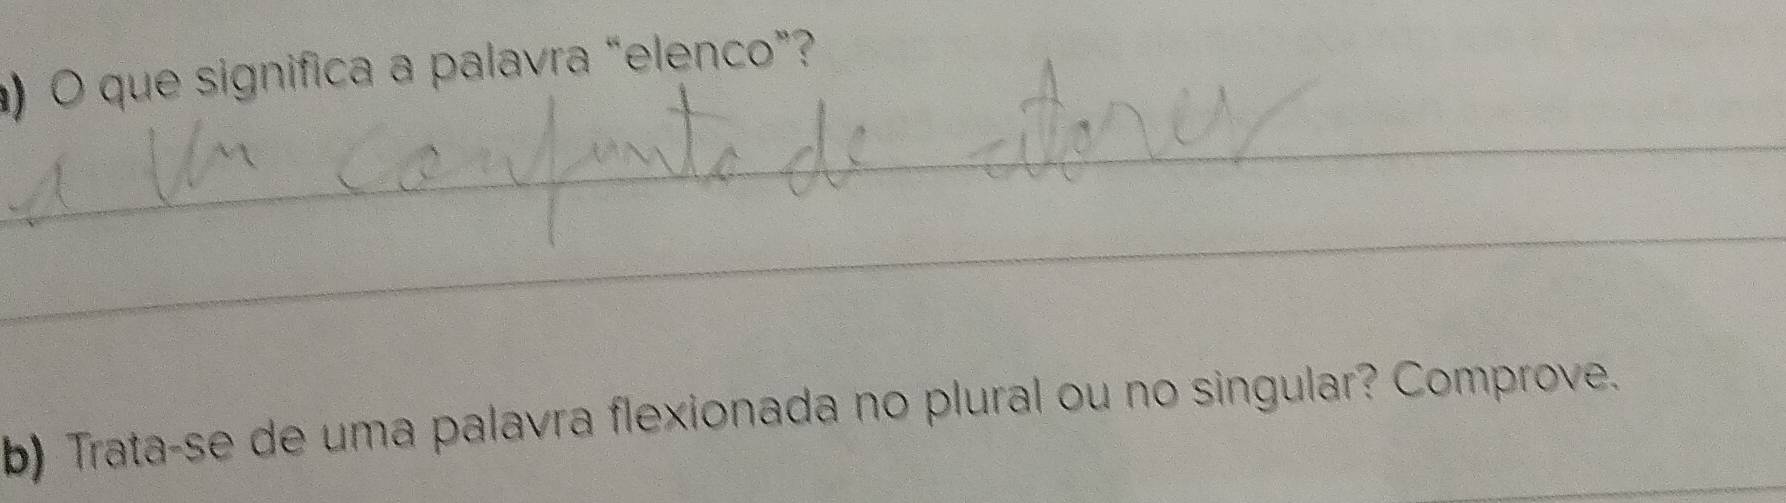 a) O que significa a palavra "elenco"?
Um conjunto de atores
b) Trata-se de uma palavra flexionada no plural ou no singular? Comprove.